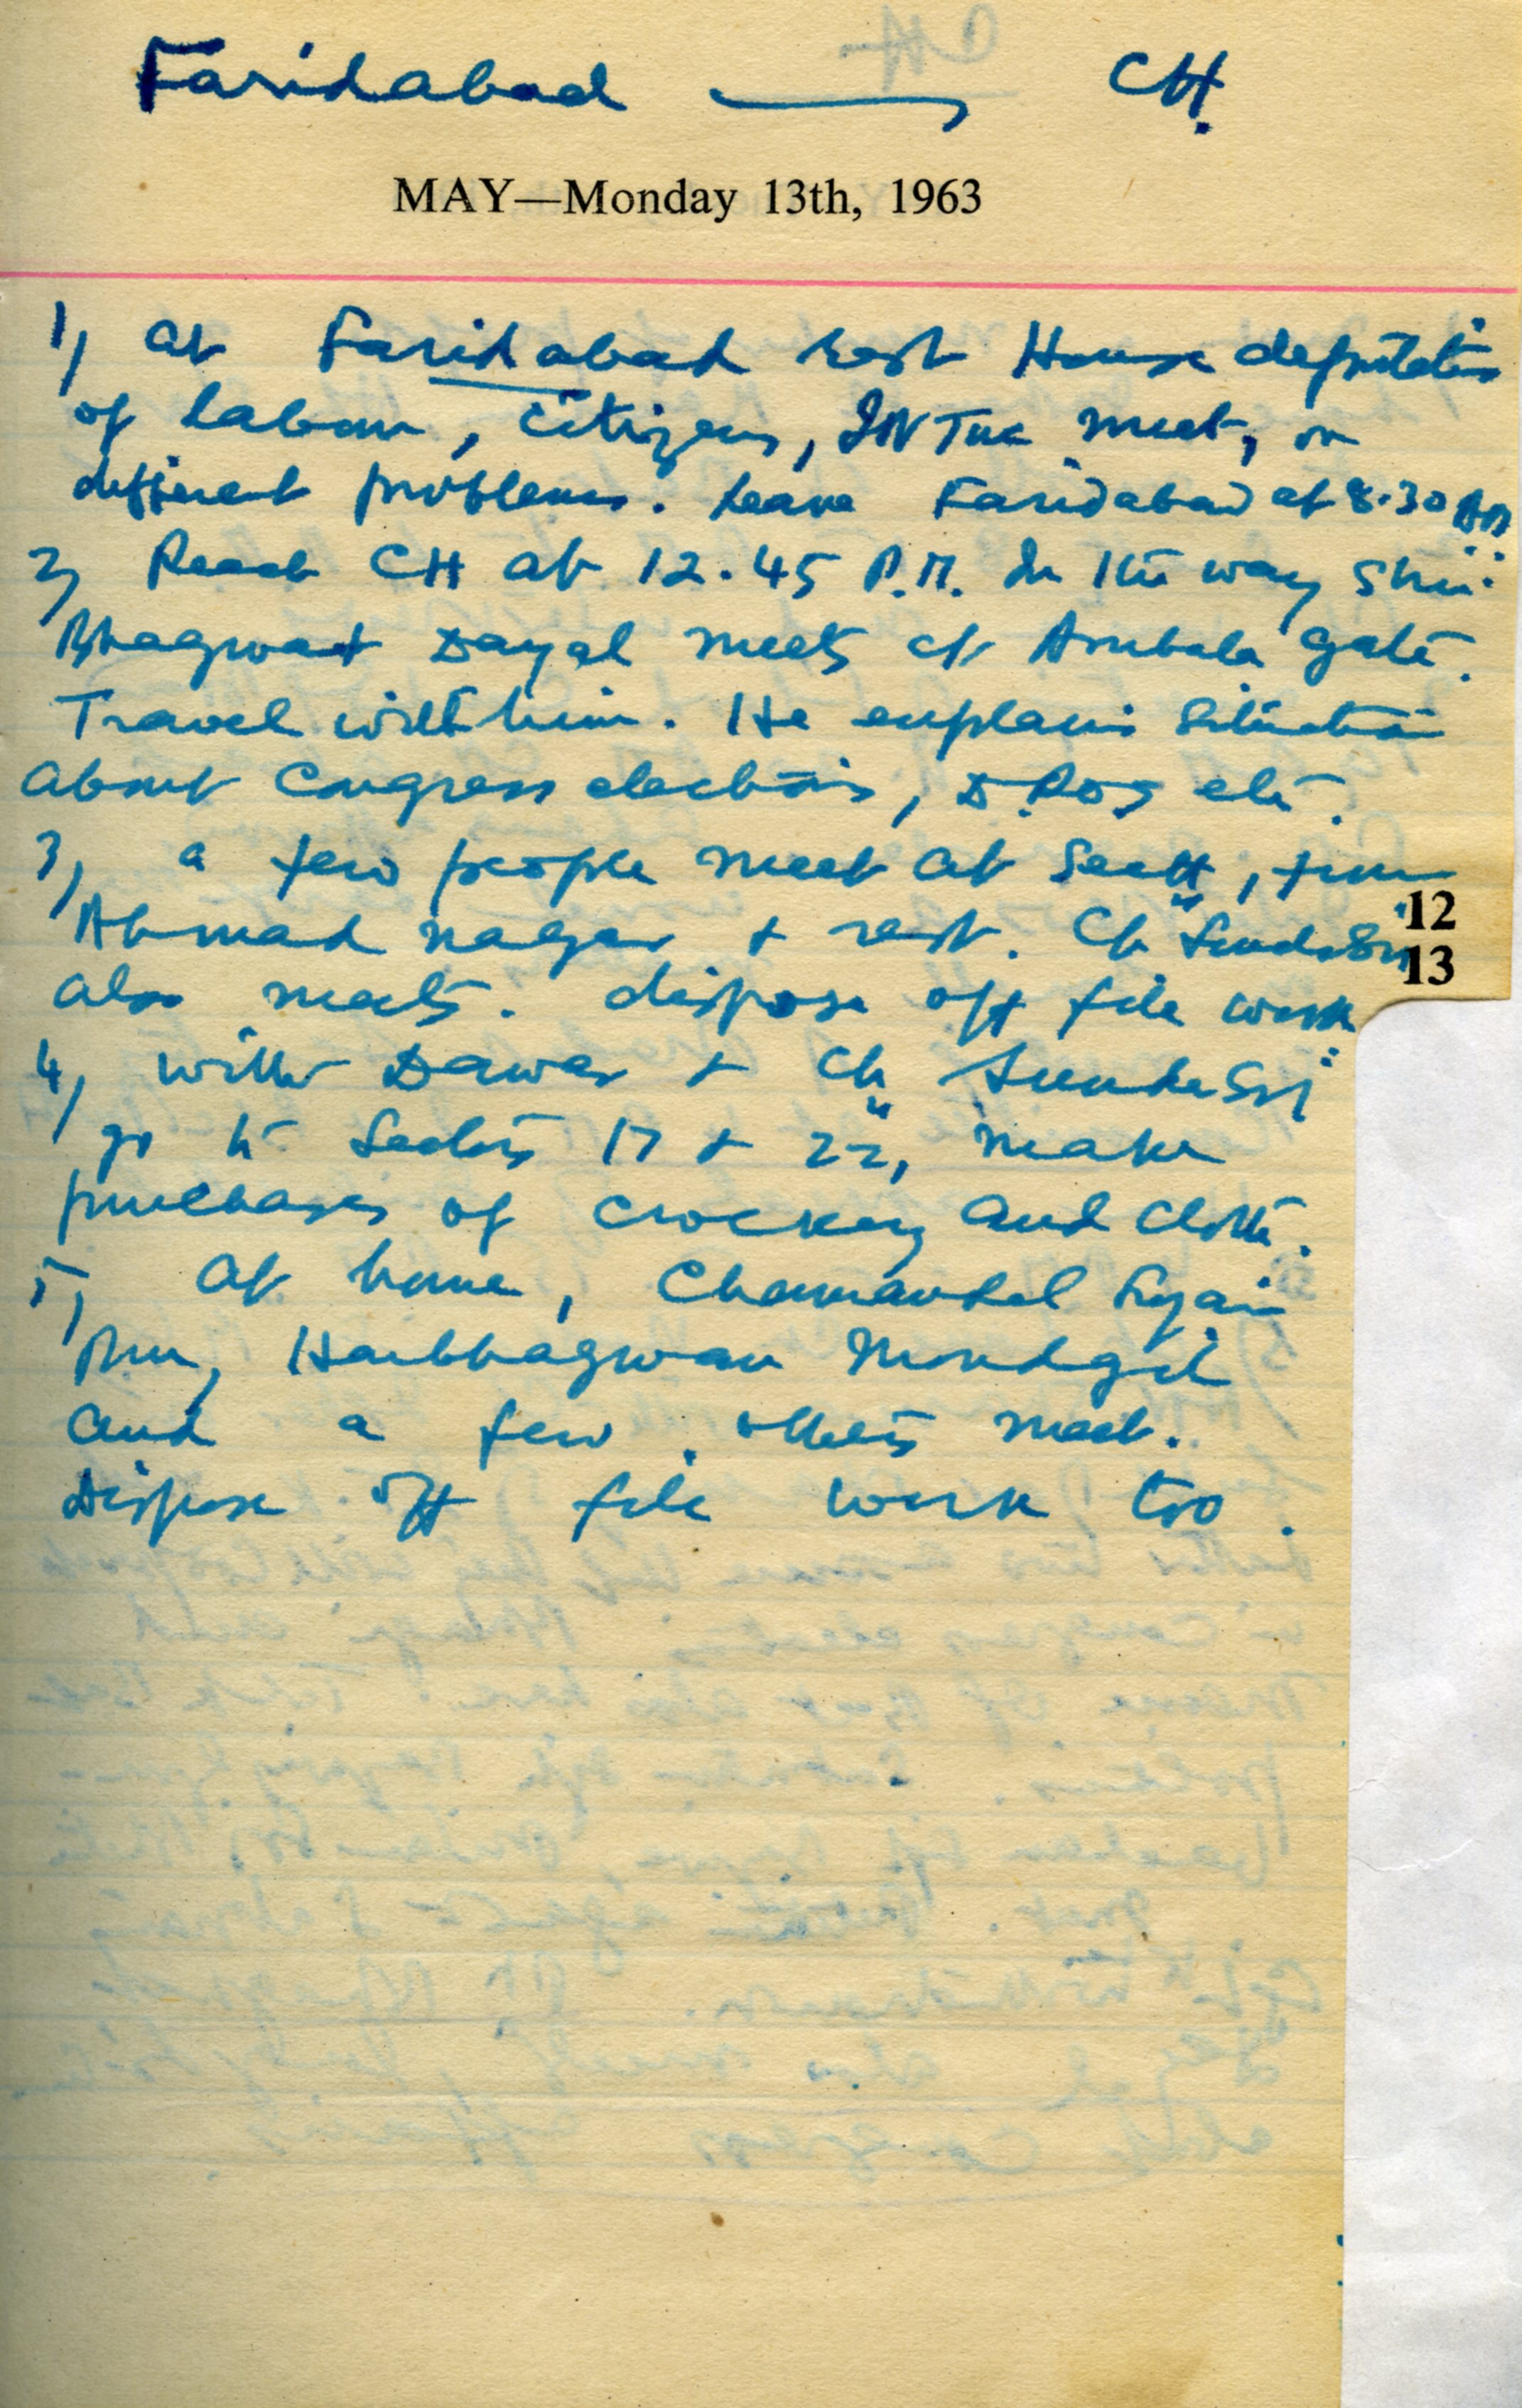 Faridabad — CH.
MAY—Monday 13th, 1963
1, At Faridabad rest House deputation
of labour, citizens, INTUC meet, on
different problems. Leave Faridabad at 8.30 AM
2, Reach CH at 12.45 P.M. In the way Shri
Bhagwat Dayal meets at Ambala gate.
Travel with him. He explains situation
about Congress elections, D.P.O.s etc.
3, a few people meet at Sectt, from
Ahmad nagar & rest. Ch Sunder Singh
12
also meets. dispose off file work
13
4, with Dawar & Ch Sunder Singh
go to Sectors 17 & 22, make
purchases of crockery and cloth.
5, At home, Chamanlal
Harbhagwan Moudgil
and a few others meet.
Dispose off file work too.